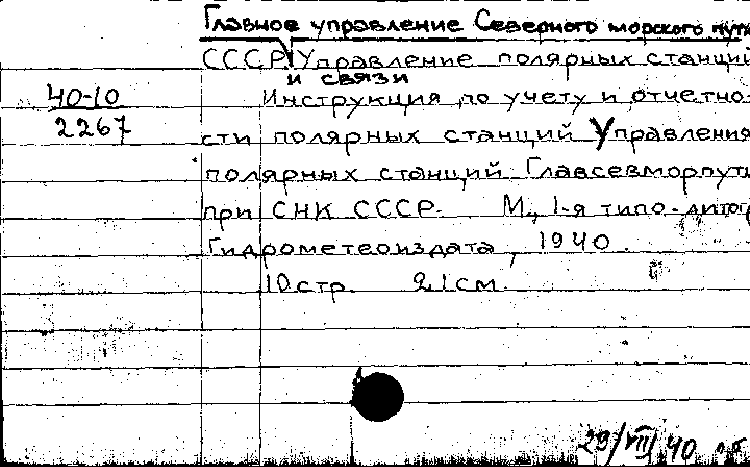 Главное управление Северного морского пути
СССР. Управление полярных станций
и связи
40-10
2267
Инструкция по учету и отчетно-
сти полярных станций Управления
полярных станций Главсевморпути
при СНК СССР. М., 1-я типо-литогр
Гидрометеоиздата, 1940.
10 стр. 21 см.
29/VII 40